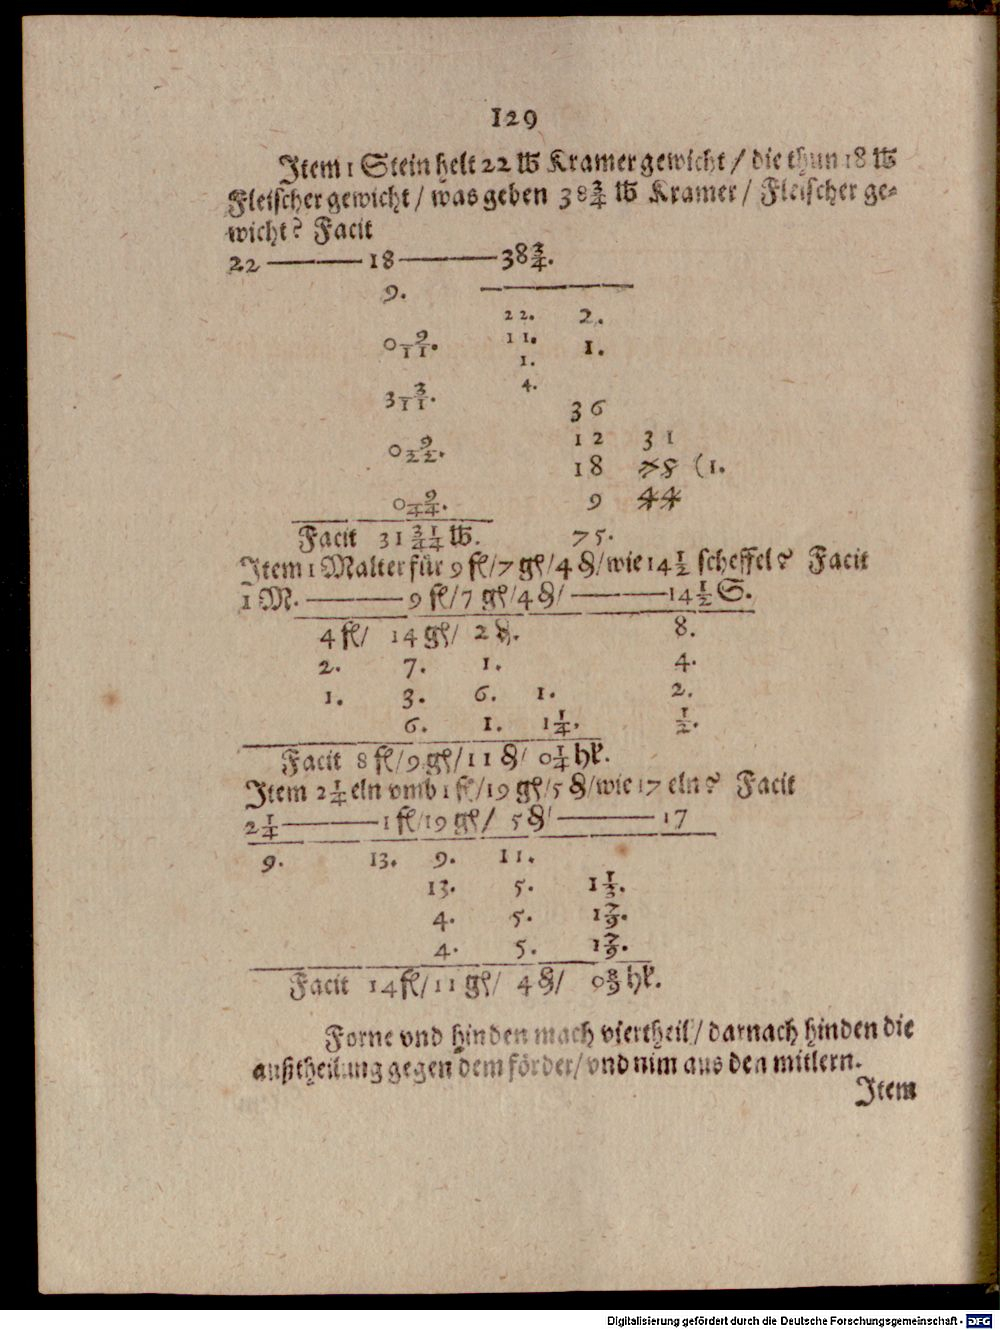 129
Item 1 Stein helt 22 ℔ Kramer gewicht / die thun 18 ℔
Fleischer gewicht / was geben 38 3/4 ℔ Kramer / Fleischer ge-
wicht? Facit
22 ——— 18 ——— 38 3/4.
9.
22. 2.
0 9/11. 11. 1.
1.
3 3/11. 4.
36
12 31
0 9/22. 18 78 (1.
0 9/44. 9 44
Facit 31 31/44 ℔. 75.
Item 1 Malter für 9 fl/ 7 gl/ 4 ₰/ wie 14 1/2 scheffel? Facit
1 M. ——— 9 fl/ 7 gl/ 4 ₰/ ——— 14 1/2 S.
4 fl/ 14 gl/ 2 ₰. 8.
2. 7. 1. 4.
1. 3. 6. 1. 2.
6. 1. 1 1/4. 1/2.
Facit 8 fl/ 9 gl/ 11 ₰/ 0 1/4 hl.
Item 2 1/4 eln vmb 1 fl/ 19 gl/ 5 ₰/ wie 17 eln? Facit
2 1/4 ——— 1 fl/ 19 gl/ 5 ₰/ ——— 17
9. 13. 9. 11.
13. 5. 1 1/3.
4. 5. 1 7/9.
4. 5. 1 7/9.
Facit 14 fl/ 11 gl/ 4 ₰/ 0 8/9 hl.
Forne vnd hinden mach viertheil/ darnach hinden die
außtheilung gegen dem förder/ vnd nim aus den mitlern.
Item
Digitalisierung gefördert durch die Deutsche Forschungsgemeinschaft - DFG